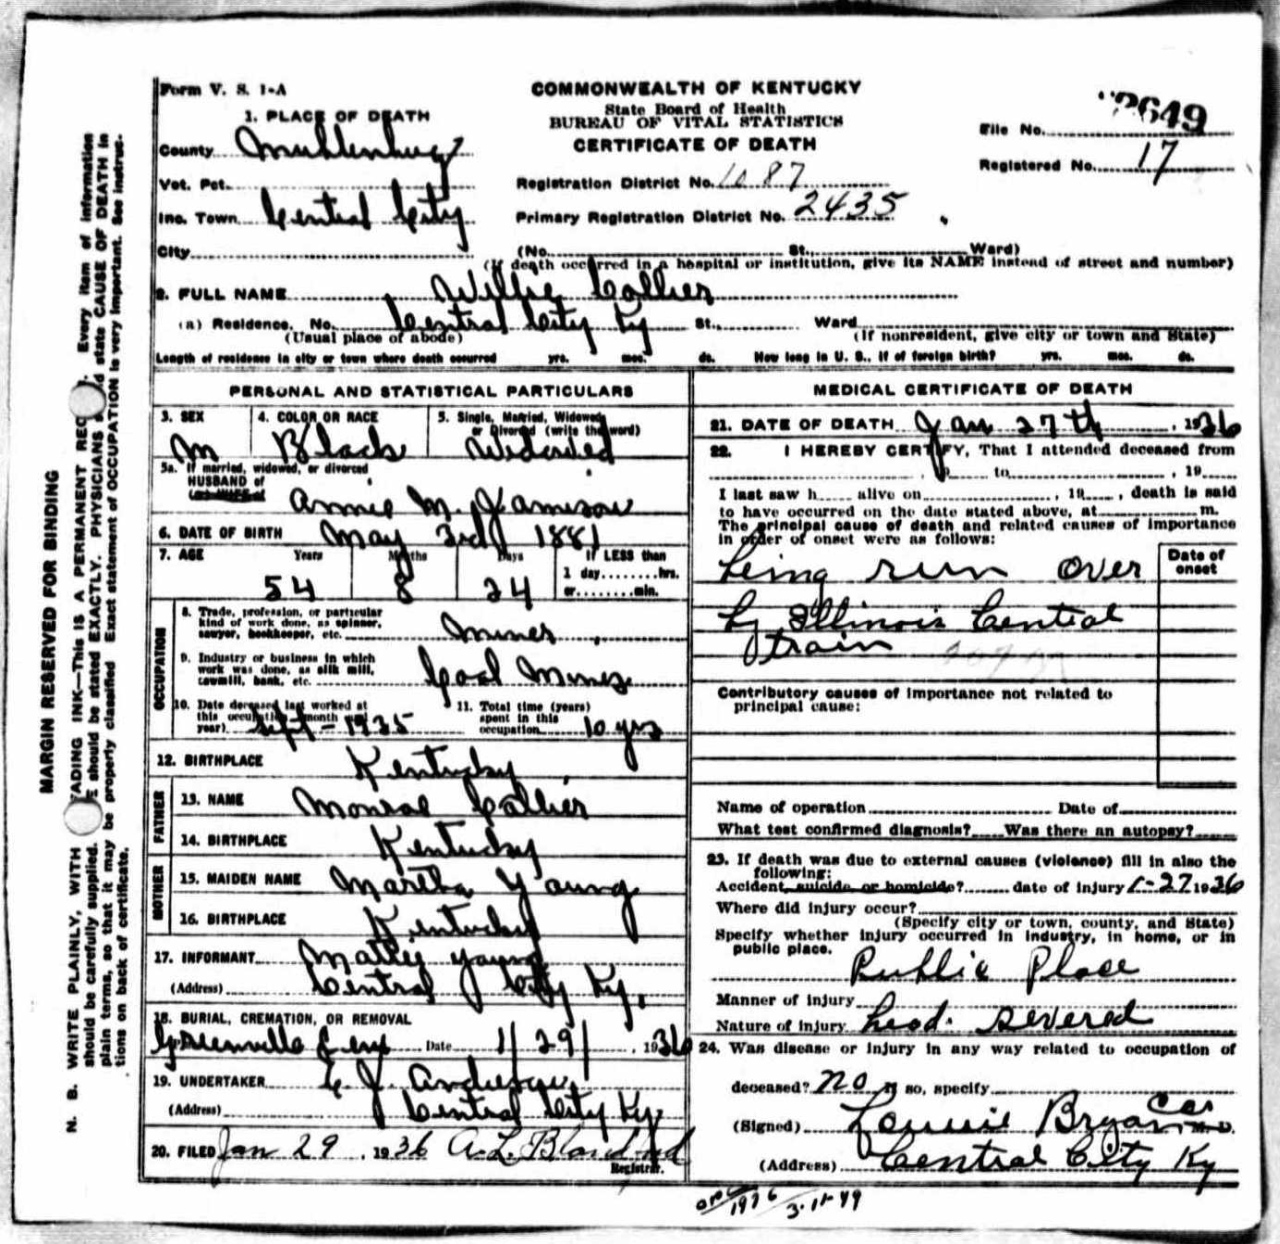 Form V. S. 1-A
COMMONWEALTH OF KENTUCKY
State Board of Health
BUREAU OF VITAL STATISTICS
CERTIFICATE OF DEATH
File No. 2649
Registered No. 17
1. PLACE OF DEATH
County Muhlenburg
Vot. Pct.
Registration District No. 1087
Inc. Town Central City
Primary Registration District No. 2435
City (No. St. Ward)
(If death occurred in a hospital or institution, give its NAME instead of street and number)
2. FULL NAME Willie Collier
(a) Residence. No. Central City Ky St., Ward
(Usual place of abode) (If nonresident, give city or town and State)
Length of residence in city or town where death occurred yrs. mos. ds. How long in U. S., if of foreign birth? yrs. mos. ds.
PERSONAL AND STATISTICAL PARTICULARS
3. SEX 4. COLOR OR RACE 5. Single, Married, Widowed, or Divorced (write the word)
M Black Widowed
5a. If married, widowed, or divorced
HUSBAND of
Annie M. Jameson
6. DATE OF BIRTH May 3rd 1881
7. AGE Years Months Days If LESS than
1 day........hrs.
or........min.
54 8 24
OCCUPATION
8. Trade, profession, or particular kind of work done, as spinner, sawyer, bookkeeper, etc. Miner
9. Industry or business in which work was done, as silk mill, sawmill, bank, etc. Coal Mines
10. Date deceased last worked at this occupation (month and year) Sept-1935
11. Total time (years) spent in this occupation 10 yrs
12. BIRTHPLACE Kentucky
FATHER
13. NAME Monroe Collier
14. BIRTHPLACE Kentucky
MOTHER
15. MAIDEN NAME Martha Young
16. BIRTHPLACE Kentucky
17. INFORMANT Matty Young
(Address) Central City Ky.
18. BURIAL, CREMATION, OR REMOVAL
Greenville Cem Date 1/29/, 1936
19. UNDERTAKER
(Address) Central City Ky.
20. FILED Jan 29, 1936 A. L. Bland
Registrar.
MEDICAL CERTIFICATE OF DEATH
21. DATE OF DEATH Jan 27th, 1936
22. I HEREBY CERTIFY, That I attended deceased from
to , 19
I last saw h alive on , 19 , death is said
to have occurred on the date stated above, at m.
The principal cause of death and related causes of importance
in order of onset were as follows:
Date of onset
being run over
by Illinois Central
train
Contributory causes of importance not related to
principal cause:
Name of operation Date of
What test confirmed diagnosis? Was there an autopsy?
23. If death was due to external causes (violence) fill in also the
following:
Accident, suicide or homicide? date of injury 1-27 1936
Where did injury occur?
(Specify city or town, county, and State)
Specify whether injury occurred in industry, in home, or in
public place.
Public Place
Manner of injury
Nature of injury head severed
24. Was disease or injury in any way related to occupation of
deceased? no If so, specify
(Signed) Bryan Cor M.D.
(Address) Central City Ky
1976 3-11-49
MARGIN RESERVED FOR BINDING
N. B. WRITE PLAINLY, WITH ADING INK—THIS IS A PERMANENT REC . Every item of information
should be carefully supplied. E should be stated EXACTLY. PHYSICIANS state CAUSE OF DEATH in
plain terms, so that it may be properly classified. Exact statement of OCCUPATION is very important. See instruc-
tions on back of certificate.